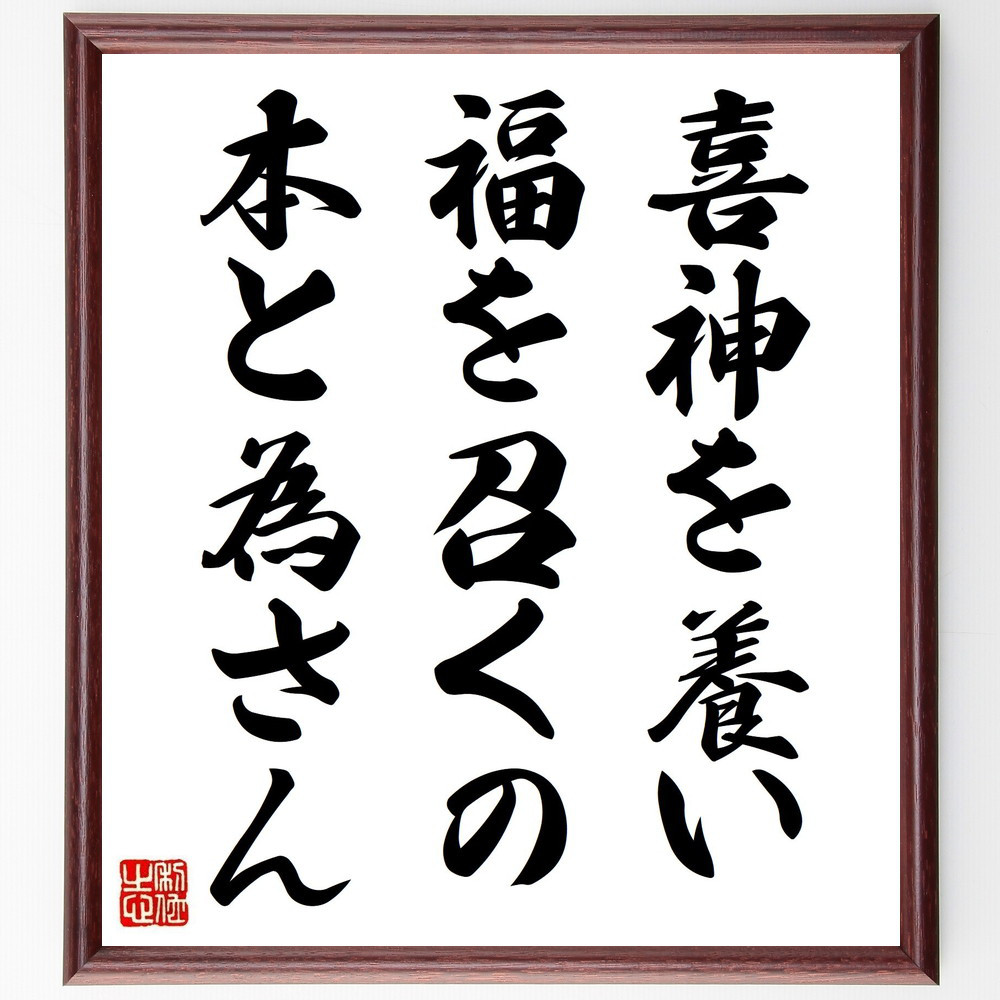 喜神を養い
福を召くの
本と為さん